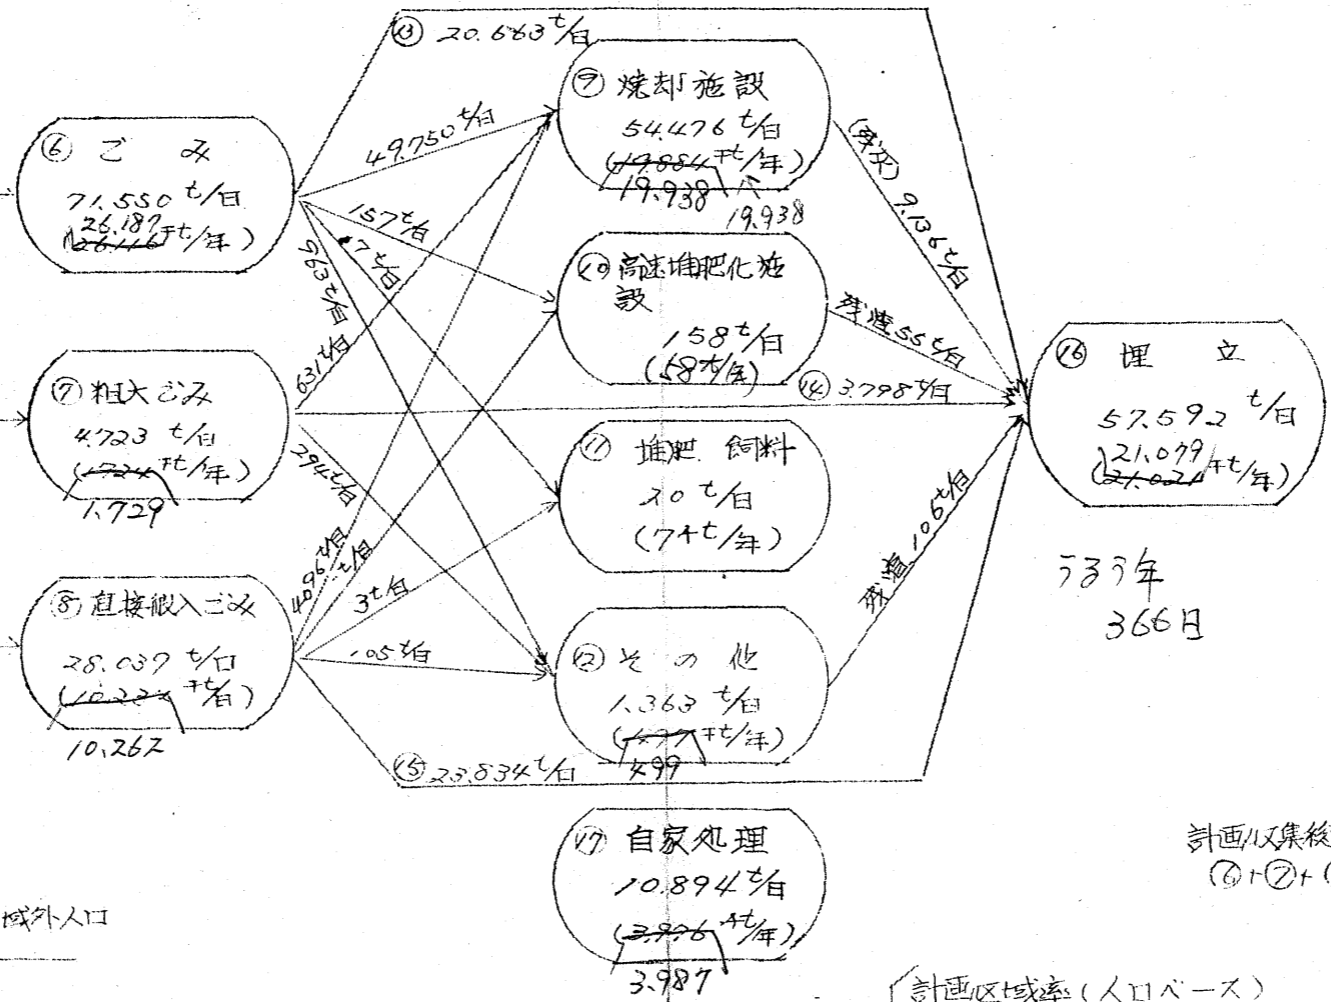 ⑬ 20.663 t/日
⑥ ごみ
71.550 t/日
26.187
(26.116 千t/年)
⑦ 粗大ごみ
4.723 t/日
(1.724 千t/年)
1.729
⑧ 直接搬入ごみ
28.037 t/日
千t/日)
10.262
49.750 t/日
157 t/日
7 t/日
963 t/日
631 t/日
294 t/日
4096 t/日
t/日
3 t/日
105 t/日
⑨ 焼却施設
54.476 t/日
(19.884 千t/年)
19.938
19.938
⑩ 高速堆肥化施
設
158 t/日
(58 t/年)
⑪ 堆肥 飼料
20 t/日
(7千t/年)
⑫ その他
1.363 t/日
千t/年)
499
⑮ 23.834 t/日
⑰ 自家処理
10.894 t/日
(3.976 千t/年)
3.987
(残灰) 9.136 t/日
残渣 55 t/日
⑭ 3.798 t/日
残渣 106 t/日
⑯ 埋立
57.592 t/日
21.079
(21.021 千t/年)
うるう年
366日
計画収集後
⑥+⑦+(
域外人口
計画区域率(人口ベース)